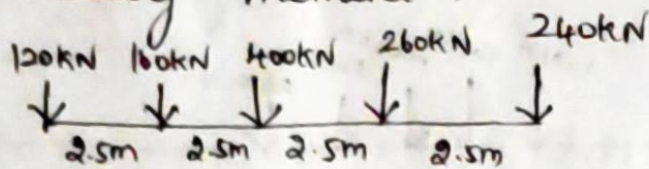 120KN 160KN 400KN 260KN 240KN
2.5m 2.5m 2.5m 2.5m